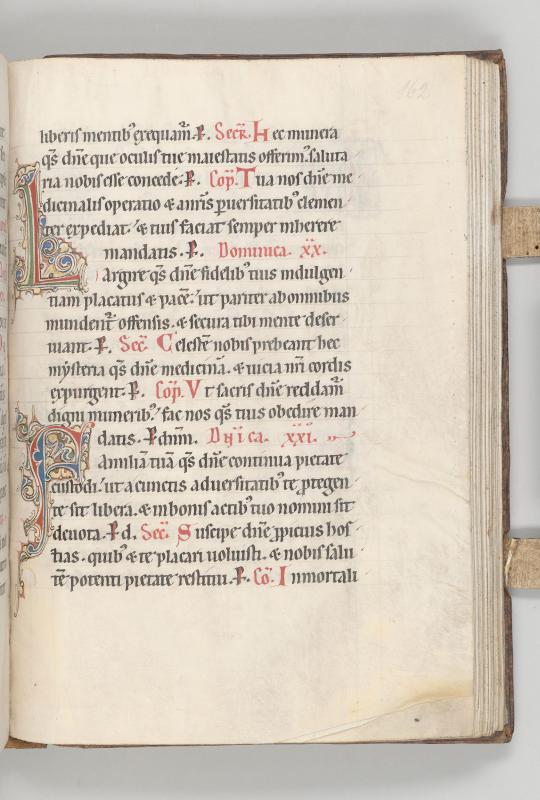 162
liberis mentib; exequam̄. P. Secr̄. Hec munera
qs̄ dn̄e que oculis tue maiestatis offerim; saluta
ria nobis esse concede. P. Cop̄. Tua nos dn̄e me
dicinalis operatio & a nr̄is puersitatib; clemen
ter expediat. & tuis faciat semper inherere
mandatis. P. Dominica. xx.
Largire qs̄ dn̄e fidelib; tuis indulgen
tiam placatus & pacē. ut pariter ab omnibus
mundent̄ offensis. & secura tibi mente deser
uiant. P. Sec̄. Celestē nobis prebeant hec
mysteria qs̄ dn̄e medicinā. & uicia nr̄i cordis
expurgent. P. Cop̄. Ut sacris dn̄e reddam̄
digni munerib; fac nos qs̄ tuis obedire man
datis. P. dnm̄. Dn̄ica. xxi.
Familiā tuā qs̄ dn̄e continua pietate
custodi. ut a cunctis aduersitatib; te ptegen
te sit libera. & in bonis actib; tuo nomini sit
deuota. P. d. Sec̄. Suscipe dn̄e ppicius hos
tias. quib; & te placari uoluisti. & nobis salu
tē potenti pietate restitui. P. Cō. Inmortali